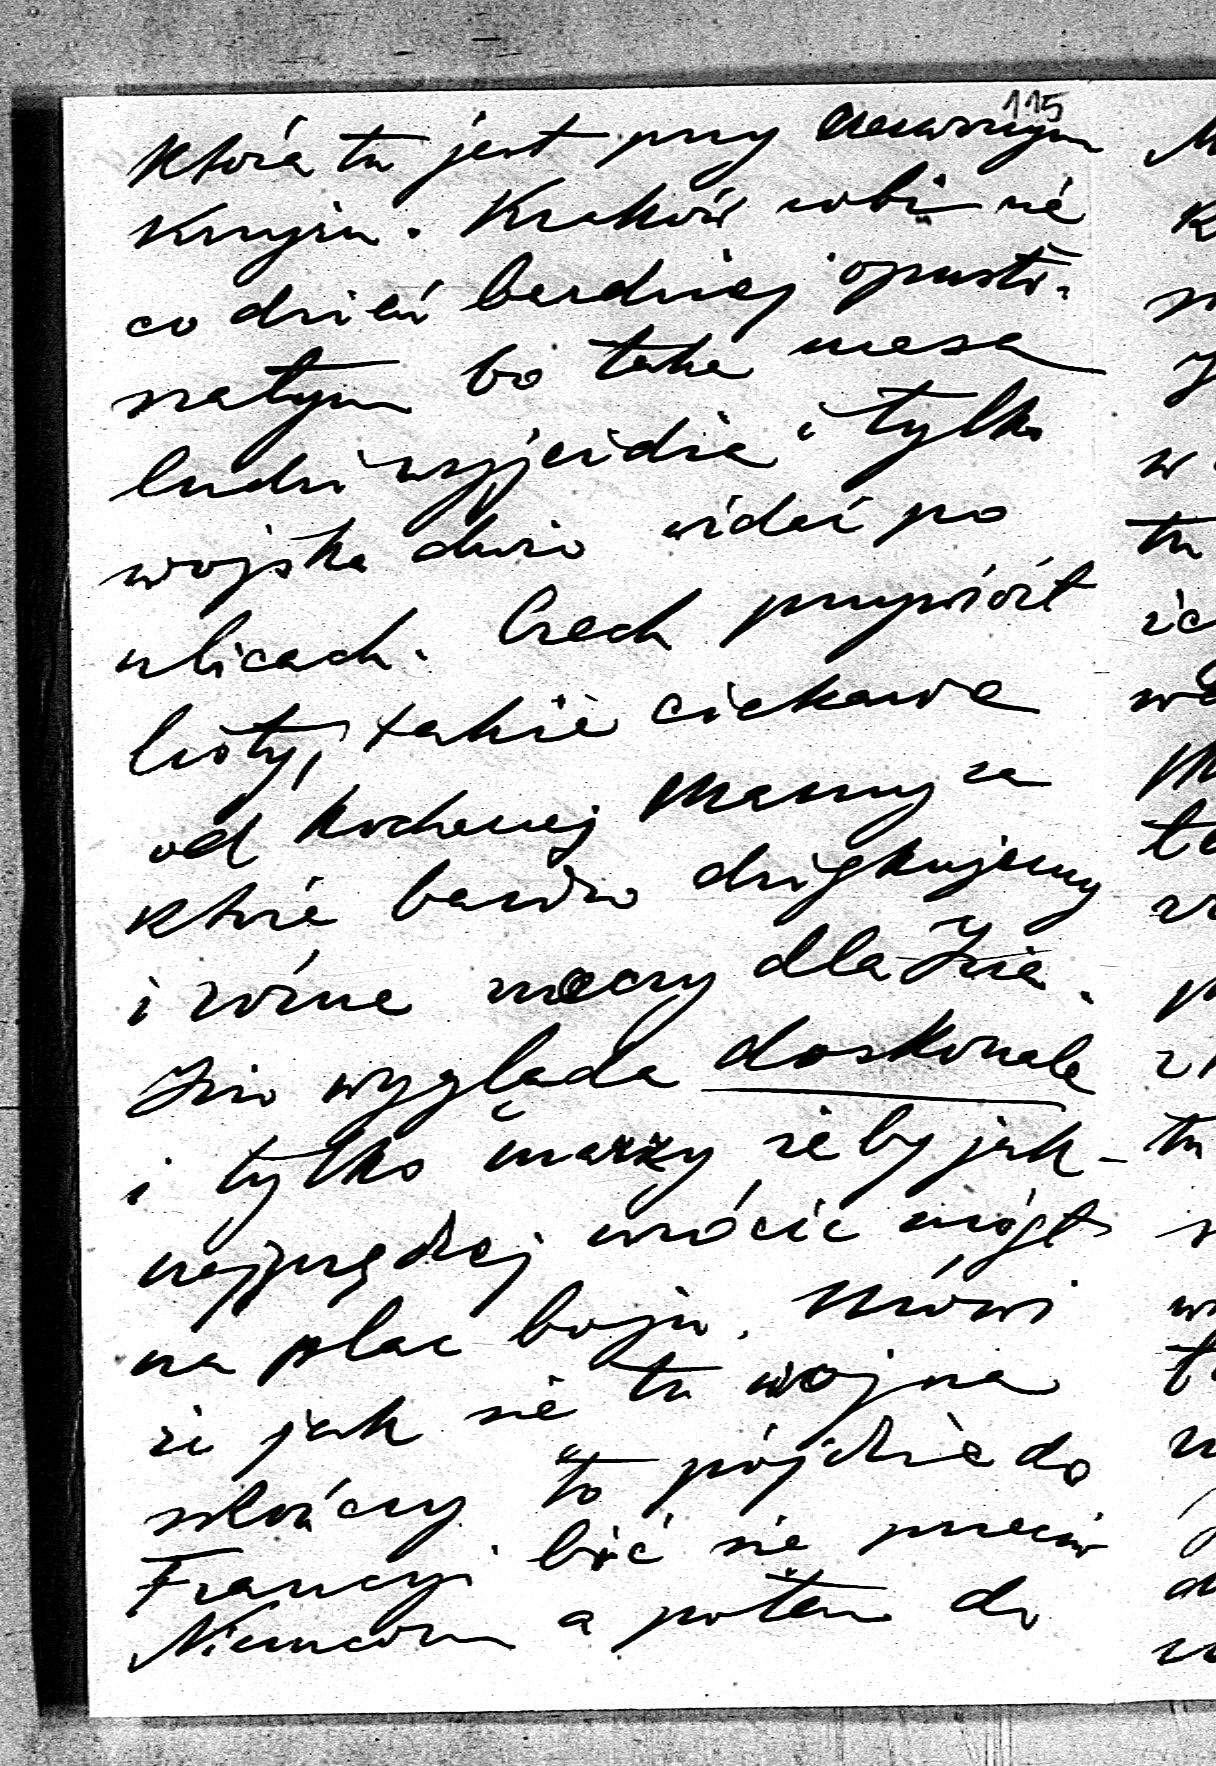 115
która tu jest przy czerwonym
Krzyżu. Kraków robi się
co dzień bardziej opusto-
szałym bo taka masa
ludzi wyjeżdża i tylko
wojska dużo widać po
ulicach. Czech przywiózł
listy, takie ciekawe
od kochanej Mamy za
które bardzo dziękujemy
i różne rzeczy dla Izia.
Izio wygląda doskonale
i tylko marzy, żeby jak-
najprędzej wrócić mógł
na plac boju. Mówi
że jak się ta wojna
skończy to pójdzie do
Francyi bić się przeciw
Niemcom a potem do